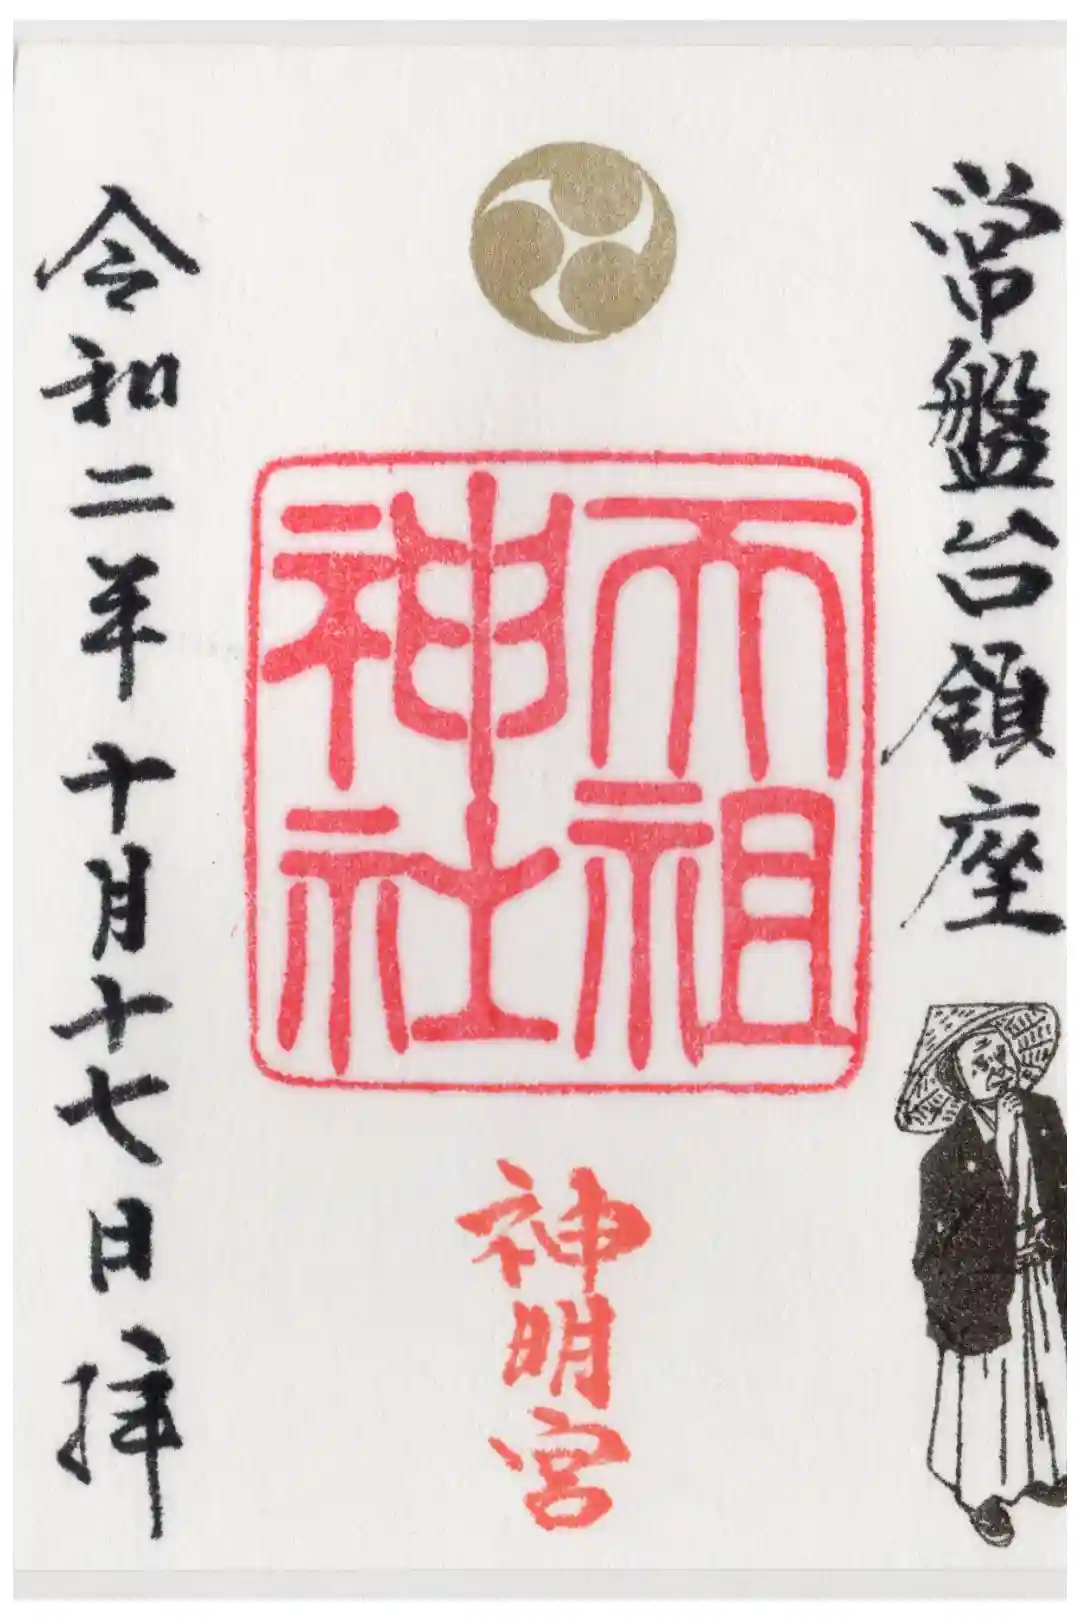 常盤台鎮座
天祖神社
神明宮
令和二年十月十七日拝